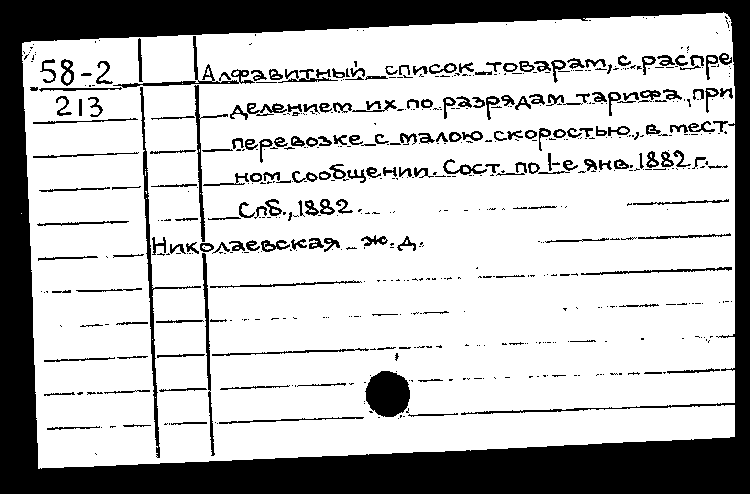 58-2
213
Алфавитный список товарам, с распре
делением их по разрядам тарифа, при
перевозке с малою скоростью, в мест-
ном сообщении. Сост. по 1-е янв. 1882 г.
Спб., 1882.
Николаевская ж. д.